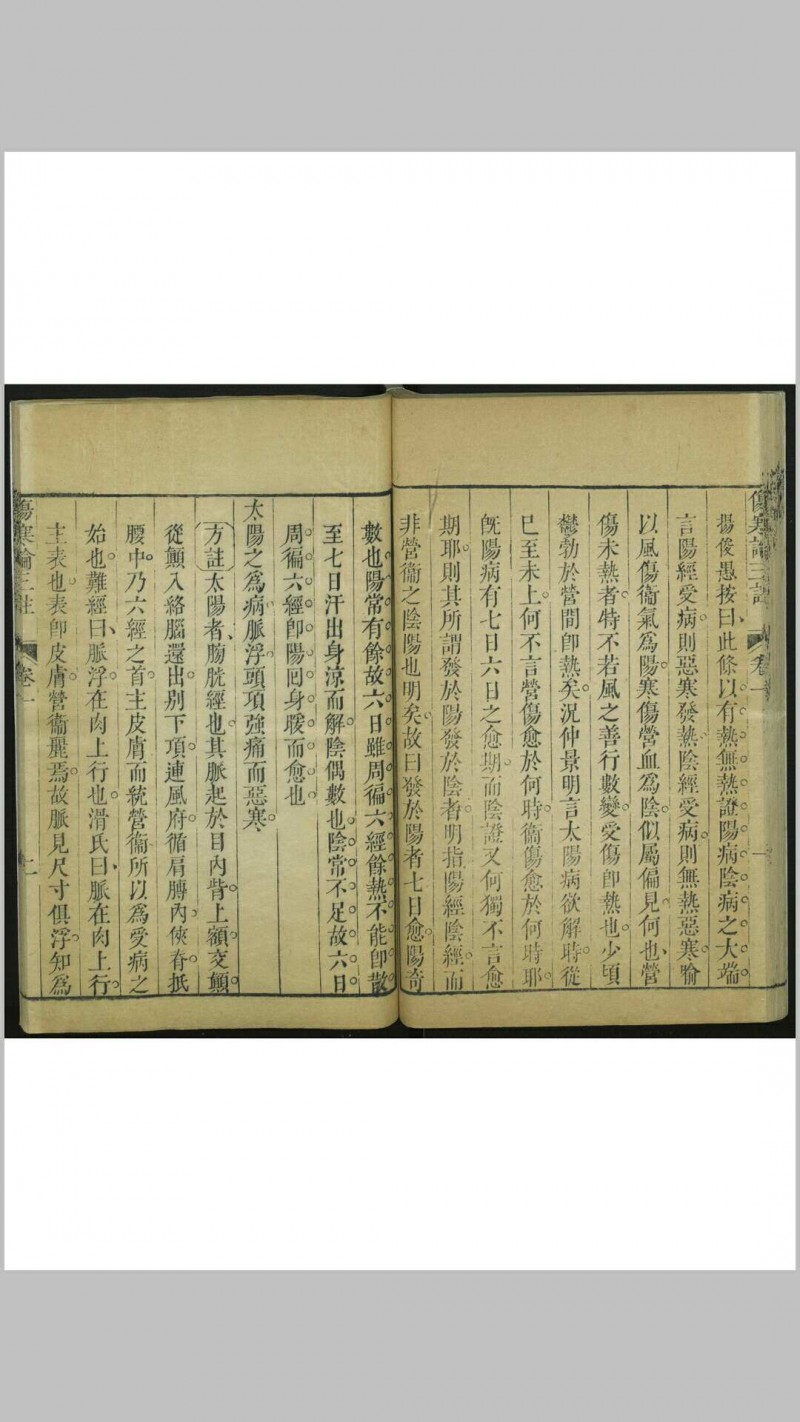 傷寒論三註
卷一
揚俊愚按曰此條以有熱無熱證陽病陰病之大端
言陽經受病則惡寒發熱陰經受病則無熱惡寒喻
以風傷衞氣爲陽寒傷營血爲陰似屬偏見何也營
傷未熱者特不若風之善行數變受傷卽熱也少頃
鬱勃於營間卽熱矣況仲景明言太陽病欲解時從
巳至未上何不言營傷愈於何時衞傷愈於何時耶
旣陽病有七日六日之愈期而陰證又何獨不言愈
期耶則其所謂發於陽發於陰者明指陽經陰經而
非營衞之陰陽也明矣故曰發於陽者七日愈陽奇
數也陽常有餘故六日雖周徧六經餘熱不能卽散
至七日汗出身涼而解陰偶數也陰常不足故六日
周徧六經卽陽回身暖而愈也
太陽之爲病脈浮頭項強痛而惡寒
方註太陽者膀胱經也其脈起於目內眥上額交顚
從顚入絡腦還出別下項連風府循肩膊內俠脊抵
腰中乃六經之首主皮膚而統營衞所以爲受病之
始也難經曰脈浮在肉上行也滑氏曰脈在肉上行
主表也表卽皮膚營衞麗焉故脈見尺寸俱浮知爲
傷寒論三註
卷一
二